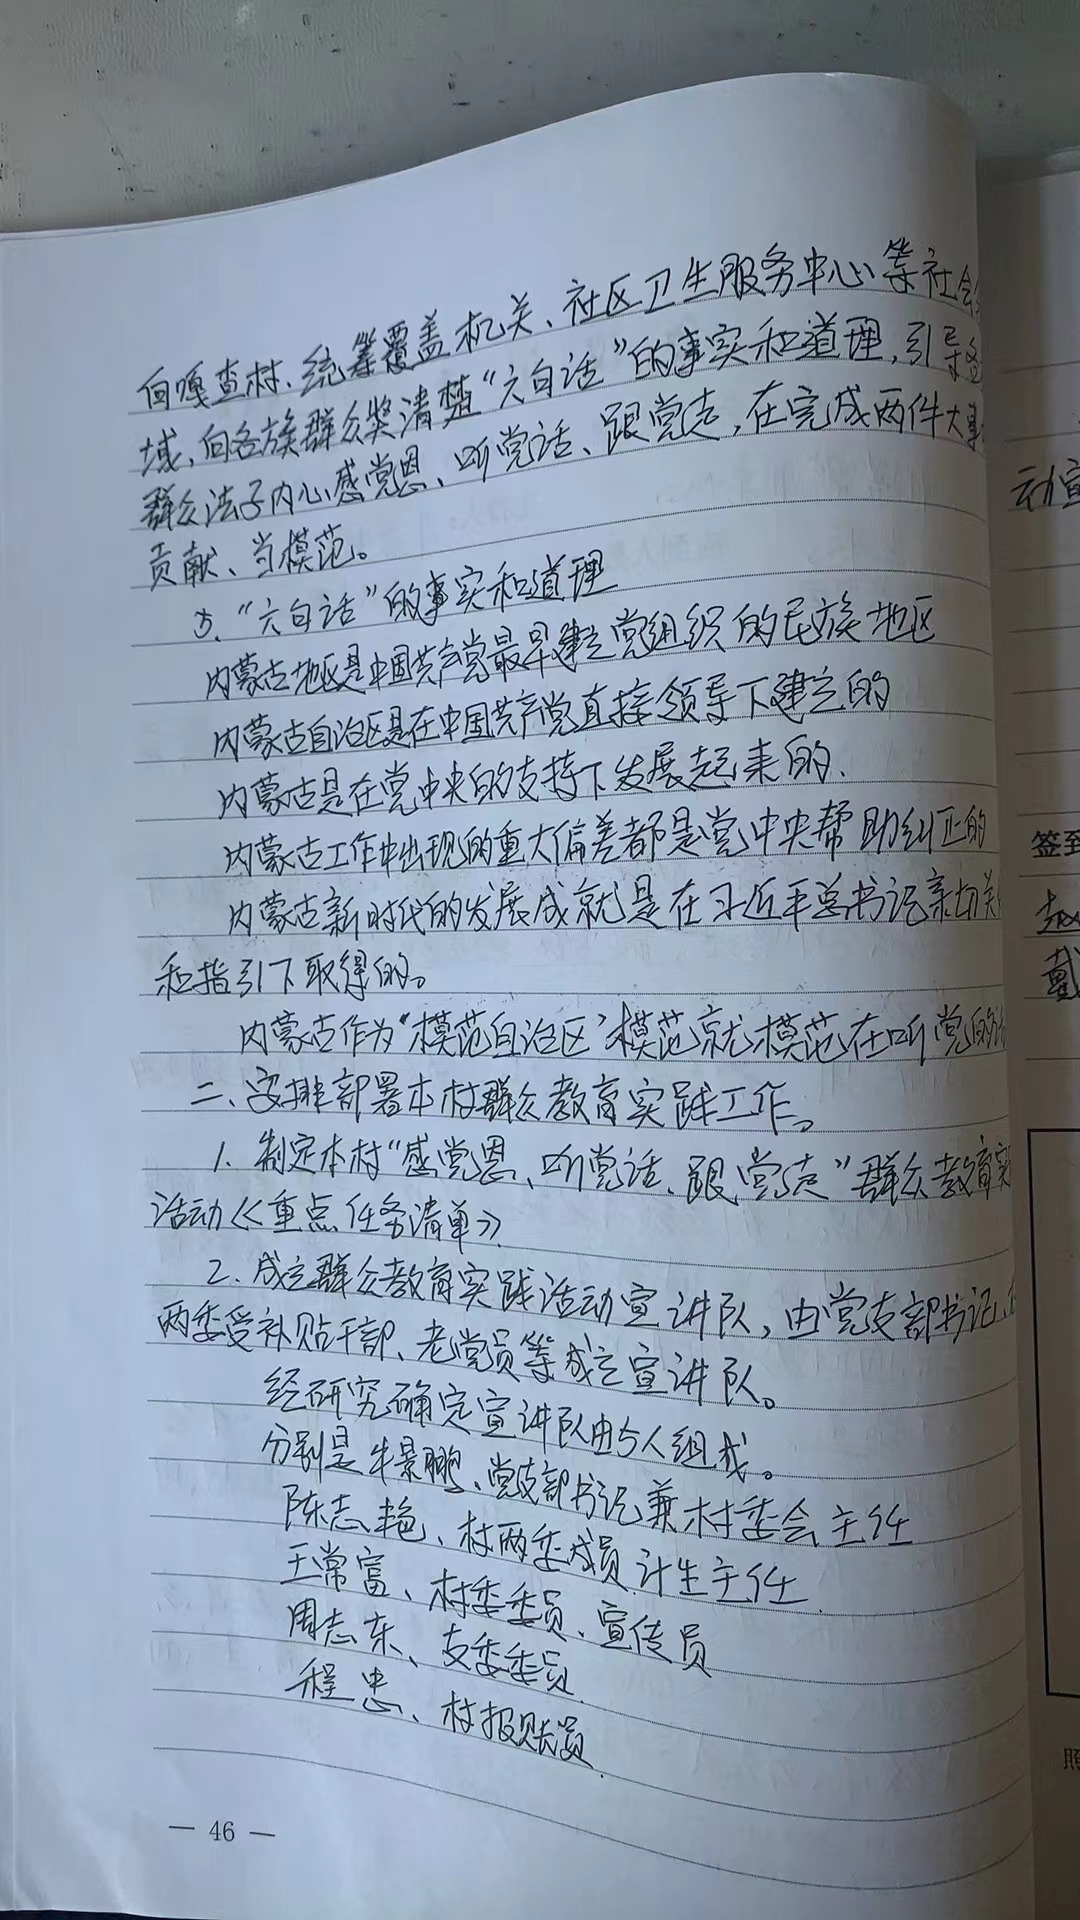 向嘎查村、统筹覆盖机关、社区卫生服务中心等社会
域,向各族群众奖清楚“六句话”的事实和道理,引导各
群众法子内心感党恩、听党话、跟党走,在完成两件大事
贡献、当模范。
3、“六句话”的事实和道理
内蒙古地区是中国共产党最早建立党组织的民族地区
内蒙古自治区是在中国共产党直接领导下建立的
内蒙古是在党中央的支持下发展起来的、
内蒙古工作中出现的重大偏差都是党中央帮助纠正的
内蒙古新时代的发展成就是在习近平总书记亲切关
和指引下取得的。
内蒙古作为“模范自治区”模范就模范在听党的
二、安排部署本村群众教育实践工作。
1. 制定本村“感党恩、听党话、跟党走”群众教育实
活动《重点任务清单》
2. 成立群众教育实践活动宣讲队,由党支部书记、
两委受补贴干部、老党员等成立宣讲队。
经研究确定宣讲队由5人组成。
分别是牛景鹏、党支部书记兼村委会主任
陈志艳、村两委成员计生主任
王常富、村委委员、宣传员
周志东、支委委员
程忠、村报账员
— 46 —
动宣
签到
赵
戴
照